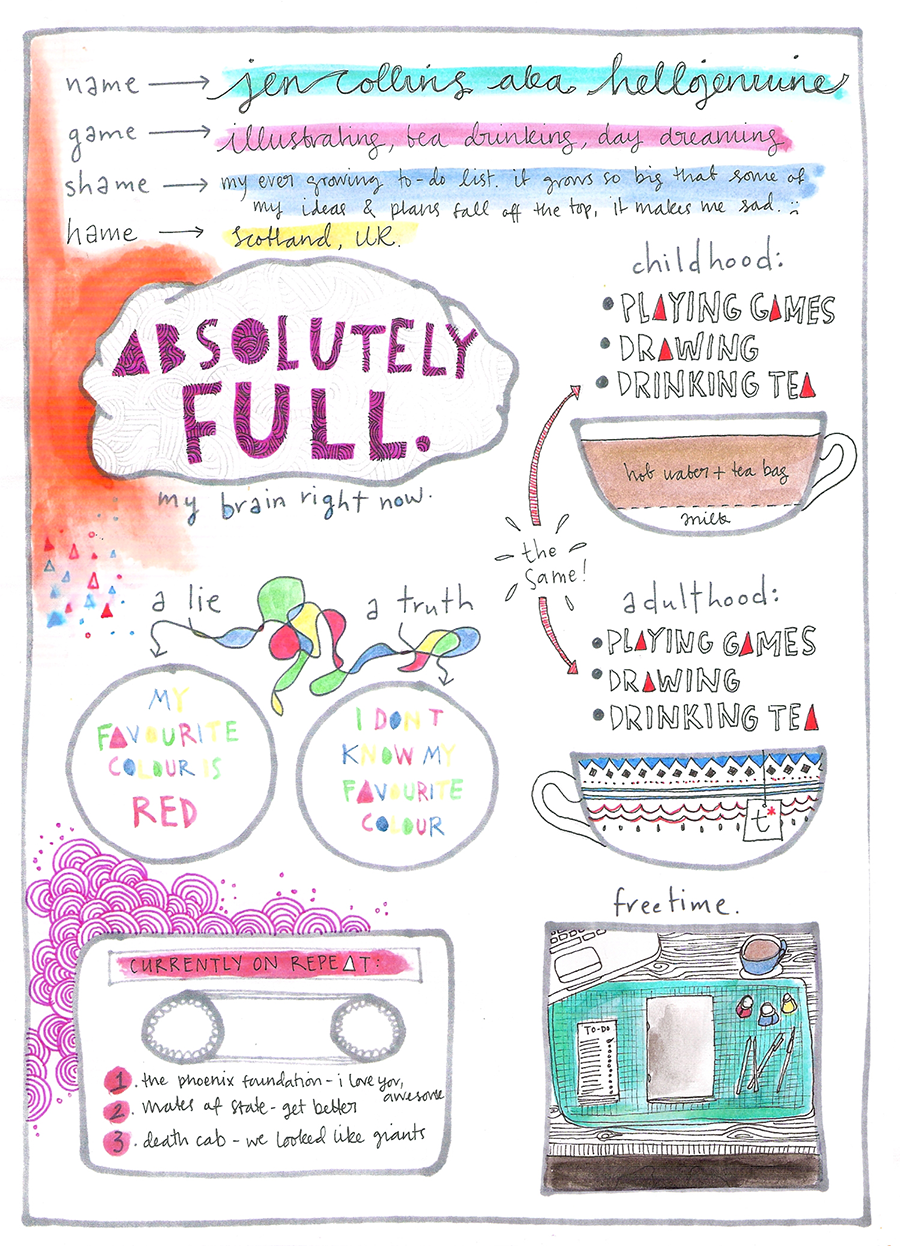 name → jen collins aka hellojenuine
game → illustrating, tea drinking, day dreaming
shame → my ever growing to-do list. it grows so big that some of
my ideas & plans fall off the top, it makes me sad. :(
hame → Scotland, UK.
ABSOLUTELY
FULL.
my brain right now.
childhood:
• PLAYING GAMES
• DRAWING
• DRINKING TEA
hot water + tea bag
milk
the
same!
adulthood:
• PLAYING GAMES
• DRAWING
• DRINKING TEA
t*
a lie
MY
FAVOURITE
COLOUR IS
RED
a truth
I DONT
KNOW MY
FAVOURITE
COLOUR
CURRENTLY ON REPEAT:
1. the phoenix foundation - i love you,
awesome
2. mates of state - get better
3. death cab - we looked like giants
freetime.
TO-DO